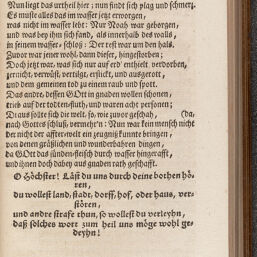 Nun liegt das urtheil hier; nun findt sich plag und schmertz.
Es muste alles das im wasser jetzt erworgen,
was nicht im wasser lebt: Nur Noah war geborgen,
und was bey ihm sich fand, als innerhalb des walls,
in seinem wasser-schloß: Der rest war um den hals.
Zuvor war jener wohl, dann dieser, hingestorben;
Doch jetzt war, was sich nur auf erd' enthielt, verdorben,
zernicht, verwüst, vertilgt, erstickt, und ausgerott,
und dem gemeinen tod zu einem raub und spott.
Das andre, dessen GOtt in gnaden wollen schonen,
trieb auf der todten-fluth, und waren acht personen;
Draus solte sich die welt, so, wie zuvor geschah, (da,
nach Gottes schluß, vermehr'n: Nun war kein mensch nicht
der nicht der affter-welt ein zeugniß kunnte bringen,
von denen gräßlichen und wunderbahren dingen,
da GOtt das sünden-fleisch durch wasser hingerafft,
und ihnen doch dabey aus gnaden rath geschafft.
O Höchster! Läst du uns durch deine bothen hö-
ren,
du wollest land, stadt, dorff, hof, oder haus, ver-
stören,
und andre strafe thun, so wollest du verleyhn,
daß solches wort zum heil uns möge wohl ge-
deyhn!